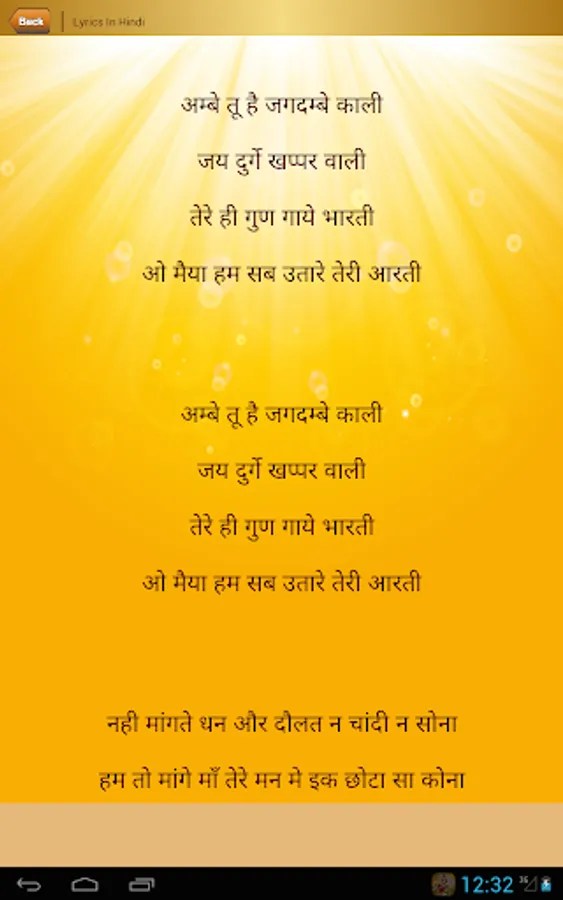 Back
Lyrics In Hindi
अम्बे तू है जगदम्बे काली
जय दुर्गे खप्पर वाली
तेरे ही गुण गाये भारती
ओ मैया हम सब उतारे तेरी आरती
अम्बे तू है जगदम्बे काली
जय दुर्गे खप्पर वाली
तेरे ही गुण गाये भारती
ओ मैया हम सब उतारे तेरी आरती
नही मांगते धन और दौलत न चांदी न सोना
हम तो मांगे माँ तेरे मन मे इक छोटा सा कोना
12:32 3G